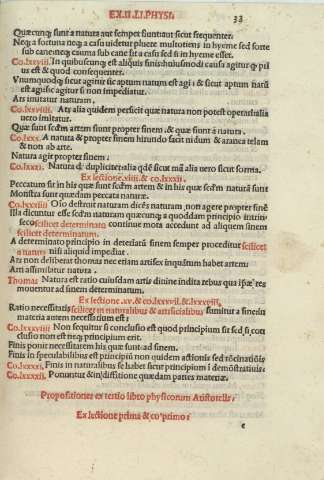 EX.II.LI.PHYSI.
33
Quæcunq; sunt a natura aut semper fiunt aut sicut frequenter.
Neq; a fortuna neq; a casu videtur pluere multotiens in hyeme sed forte
sub cane: neq; cauma sub cane sed si in hyeme esset.
Co.lxxviii. In quibuscunq; est aliquis finis: huiusmodi causa agitur q; pri
us est & quod consequenter.
Vnumquodq; sicut agitur sic aptum natum est agi: & sicut aptum natū
est agi: sic agitur si non impediatur.
Ars imitatur naturam.
Co.lxxviiii. Ars alia quidem perficit quæ natura non potest operari: alia
uero imitatur.
Quæ sunt sc̄dm artem sunt propter finem & quæ sunt a natura.
Co.lxxx. A natura & propter finem hirundo facit nidum & aranea telam
& non ab arte.
Natura agit propter finem:
Co.lxxxi. Natura d̄r dupliciter: alia qdē sicut mā alia uero sicut forma.
Ex lectione.xiiii.& co.lxxxii.
Peccatum fit in his quæ sunt sc̄dm artem & in his quæ sc̄dm naturā sunt
Monstra sunt quædam peccata naturæ.
Co.lxxxiiii O so destruit naturam dicēs naturam non agere propter finē
Illa dicuntur esse sc̄dm naturam quæcunq; a quoddam principio intrin
seco scilicet determinato continue mota accedunt ad aliquem finem
scilicet determinatum
A determinato principio in determinatū finem semper proceditur scilicet
a natura nisi aliquid impediat.
Ars non deliberat thomas nec etiam artifex inquātum habet artem:
Arti assimilatur natura.
Thomas Natura est ratio cuiusdam artis diuine indita rebus qua ipsæ res
mouentur ad finem determinatum.
Ex lectione.xv.& co.lxxxvii.& lxxxviii.
Ratio necessitatis scilicet in naturalibus & artificialibus sumitur a fine: in
materia autem necessarium est:
Co.lxxxviiii Non sequitur si conclusio est quod principium sit sed si con
clusio non est neq; principium erit.
Finis ponit necessitatem his quæ sunt ad finem.
Finis in speculabilibus est principiū non quidem actionis sed rōcinatiōis
Co.lxxxxi. Finis in naturalibus se habet sicut principium i demōstratiuis:
Co.lxxxxii. Ponuntur & in diffinitione quædam partes materiæ.
Propositiones ex tertio libro physicorum Aristotelis:
Ex lectione prima & co. primo:
e